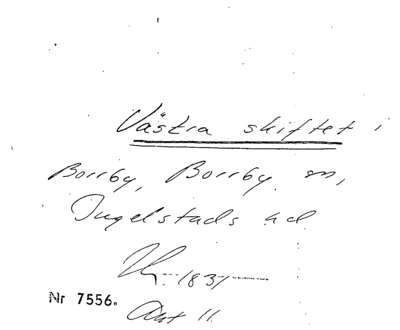 Västra skiftet i
Borrby, Borrby sn,
Ingelstads hd
1831
Nr 7556.
Akt 11.